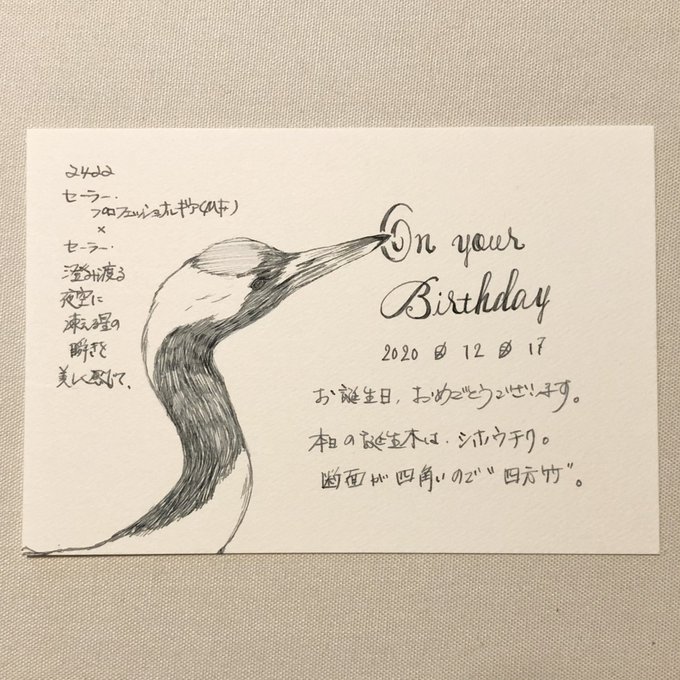 2422
セーラー・
プロフェッショナルギア(MF)
×
セーラー・
澄み渡る
夜空に
凍える星の
瞬きを
美しく感じて、
On your
Birthday
2020 12 17
お誕生日、おめでとうございます。
本日の誕生木は、シホウチク。
断面が四角いので“四方竹”。